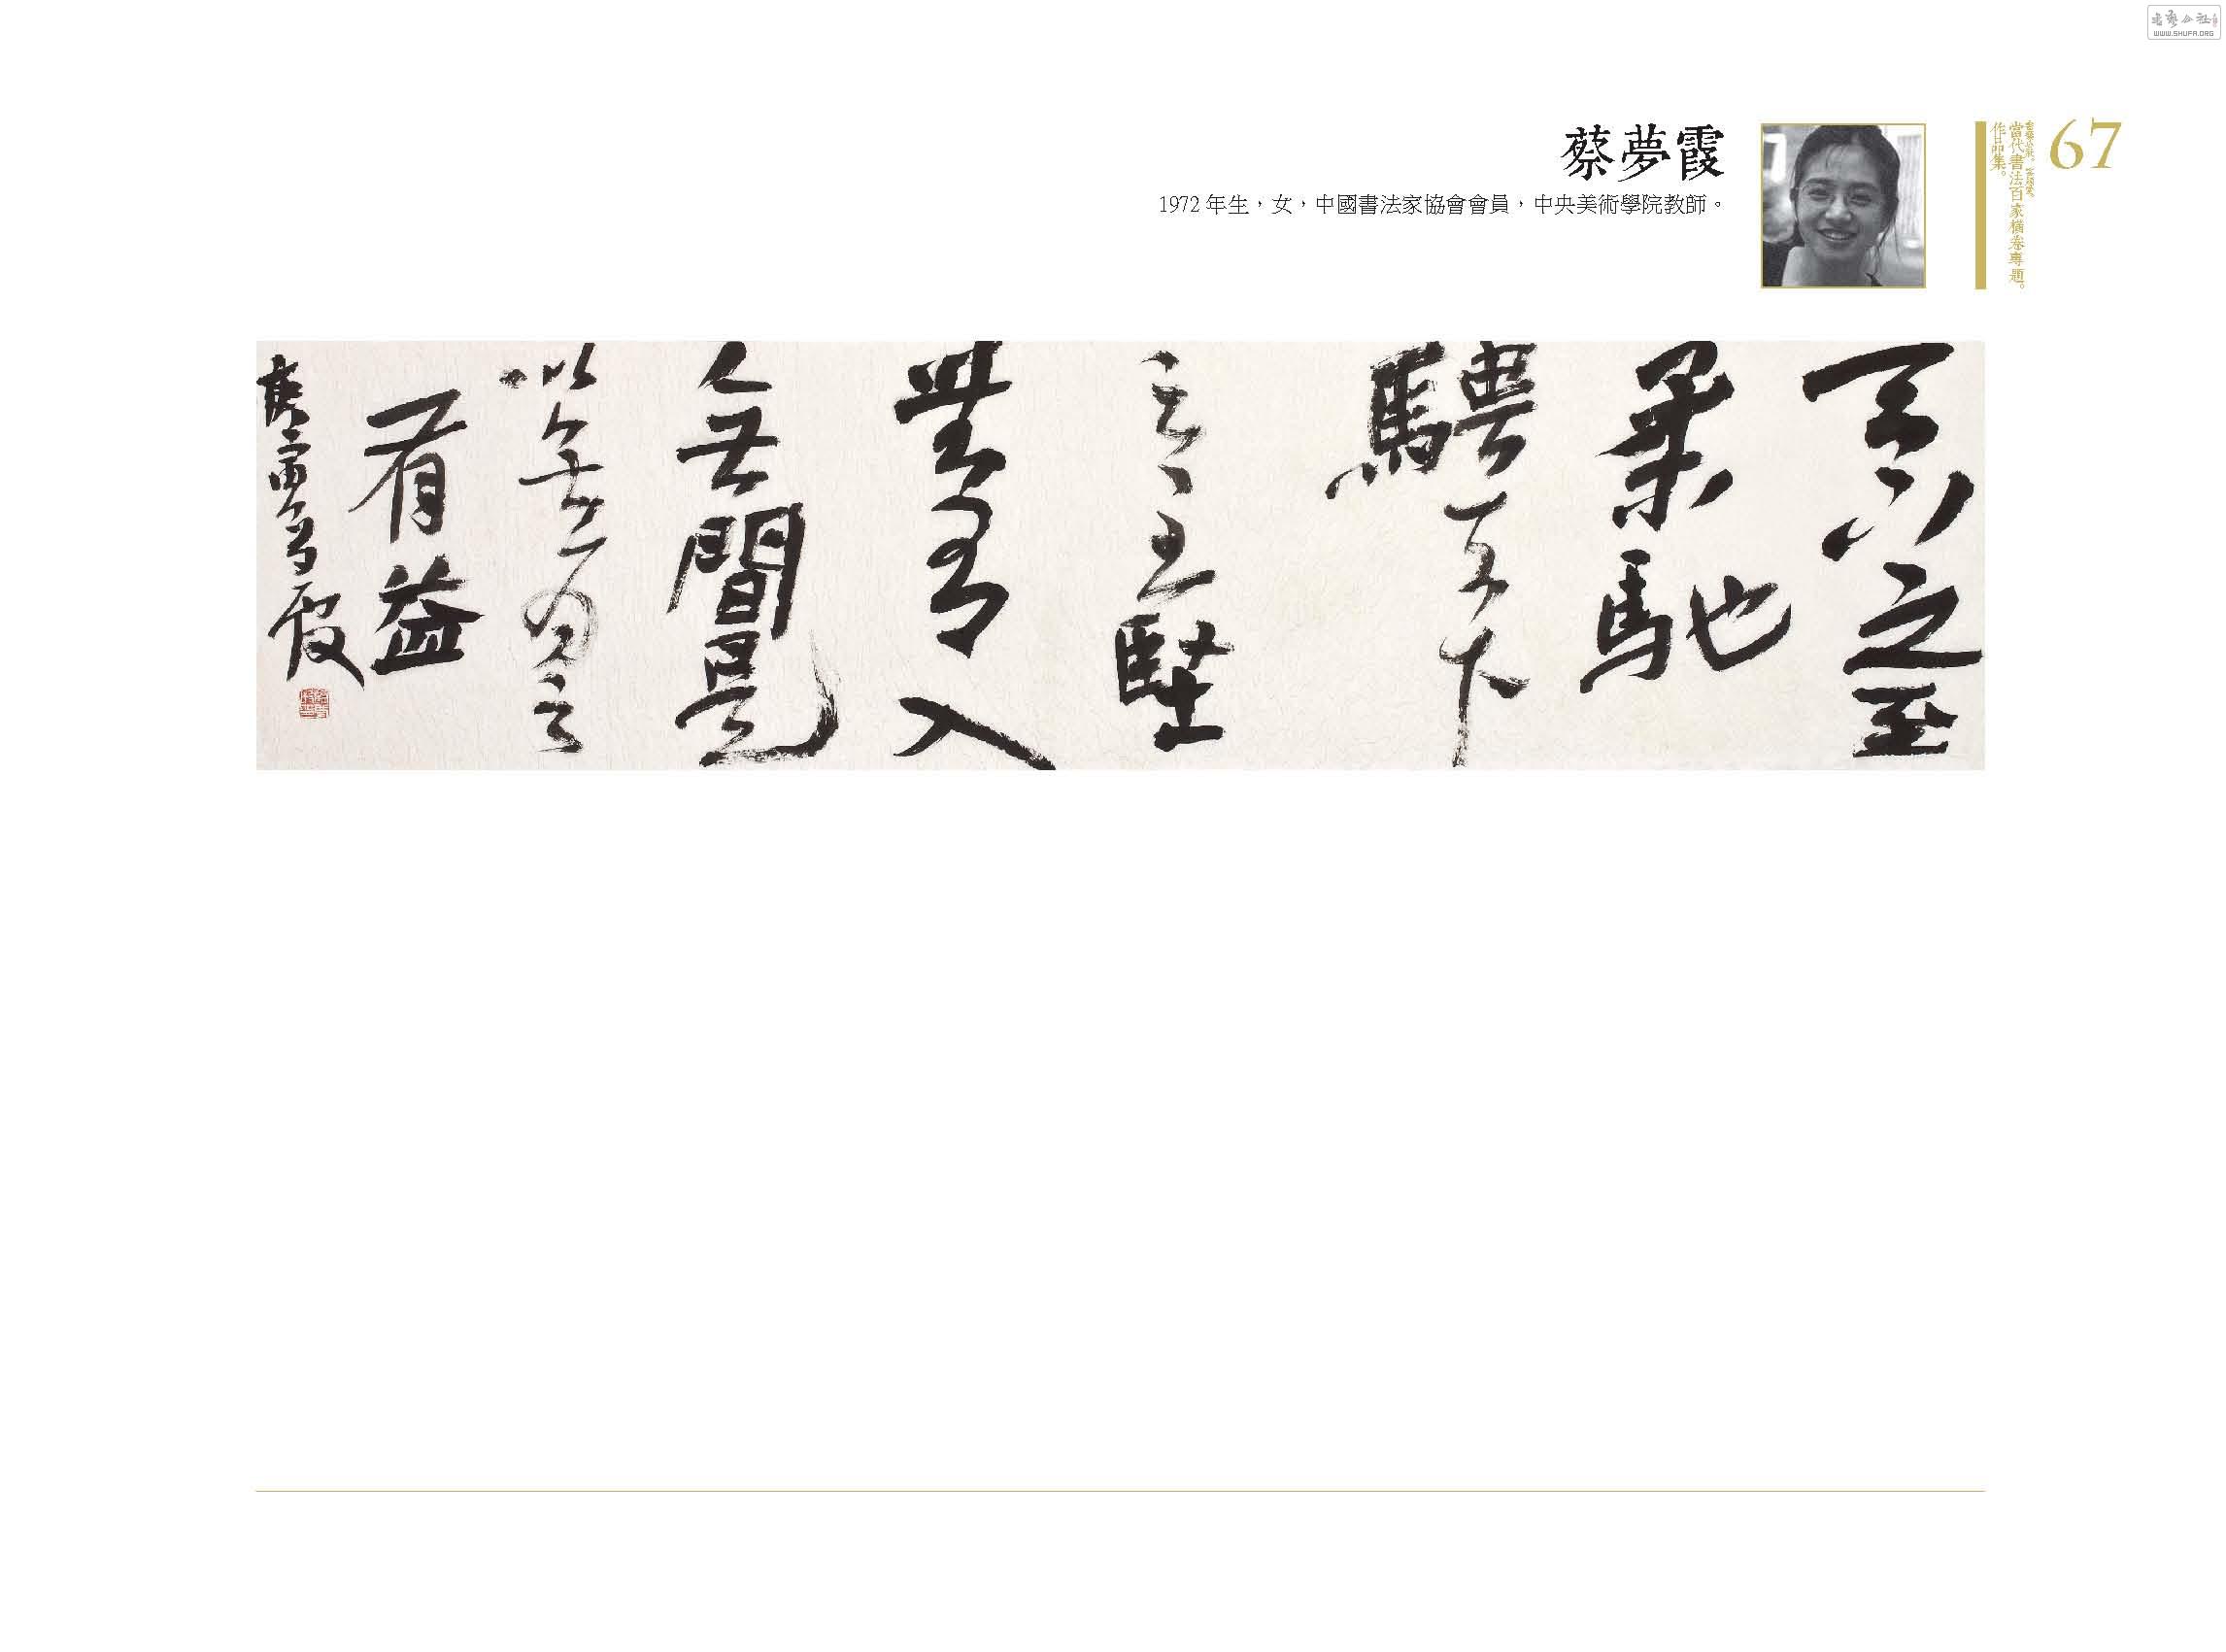 书艺公社
WWW.SHUFA.ORG
67
當代書法百家橫卷專題。
作品集。
蔡夢霞
1972年生，女，中國書法家協會會員，中央美術學院教師。
天下之至
柔馳
騁天下
之至堅
無有入
無間是
以無為之
有益
庚寅夢霞